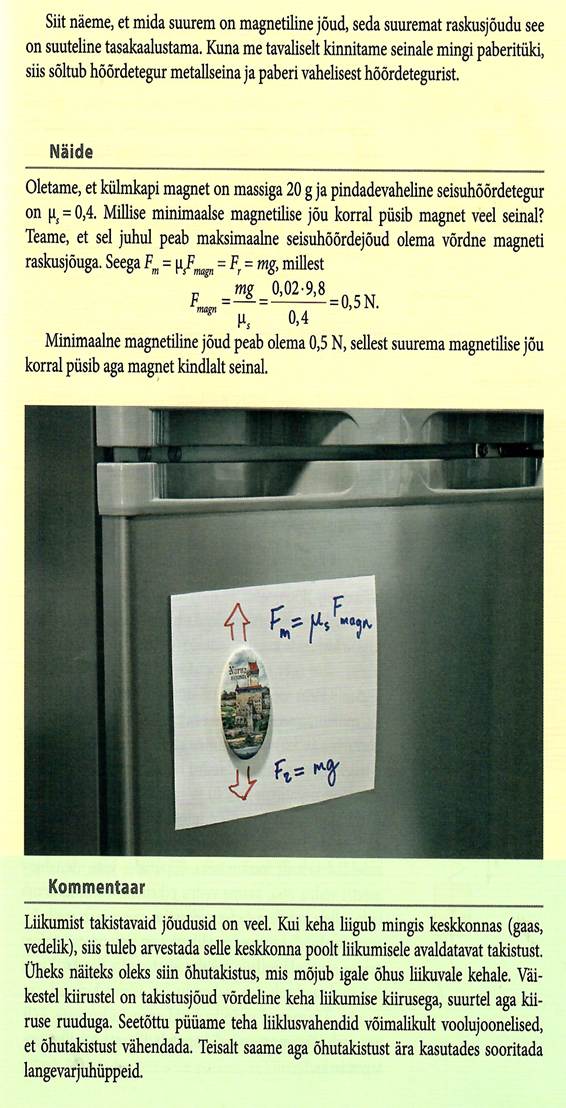 Siit näeme, et mida suurem on magnetiline jõud, seda suuremat raskusjõudu see
on suuteline tasakaalustama. Kuna me tavaliselt kinnitame seinale mingi paberitüki,
siis sõltub hõõrdetegur metallseina ja paberi vahelisest hõõrdetegurist.
Näide
Oletame, et külmkapi magnet on massiga 20 g ja pindadevaheline seisuhõõrdetegur
on μₛ = 0,4. Millise minimaalse magnetilise jõu korral püsib magnet veel seinal?
Teame, et sel juhul peab maksimaalne seisuhõõrdejõud olema võrdne magneti
raskusjõuga. Seega Fₘ = μₛF_magn = Fᵣ = mg, millest
F_magn = mg/μₛ = 0,02·9,8/0,4 = 0,5 N.
Minimaalne magnetiline jõud peab olema 0,5 N, sellest suurema magnetilise jõu
korral püsib aga magnet kindlalt seinal.
Fₘ = μₛ F_magn
Narva
Fᵣ = mg
Kommentaar
Liikumist takistavaid jõudusid on veel. Kui keha liigub mingis keskkonnas (gaas,
vedelik), siis tuleb arvestada selle keskkonna poolt liikumisele avaldatavat takistust.
Üheks näiteks oleks siin õhutakistus, mis mõjub igale õhus liikuvale kehale. Väi-
kestel kiirustel on takistusjõud võrdeline keha liikumise kiirusega, suurtel aga kii-
ruse ruuduga. Seetõttu püüame teha liiklusvahendid võimalikult voolujoonelised,
et õhutakistust vähendada. Teisalt saame aga õhutakistust ära kasutades sooritada
langevarjuhüppeid.